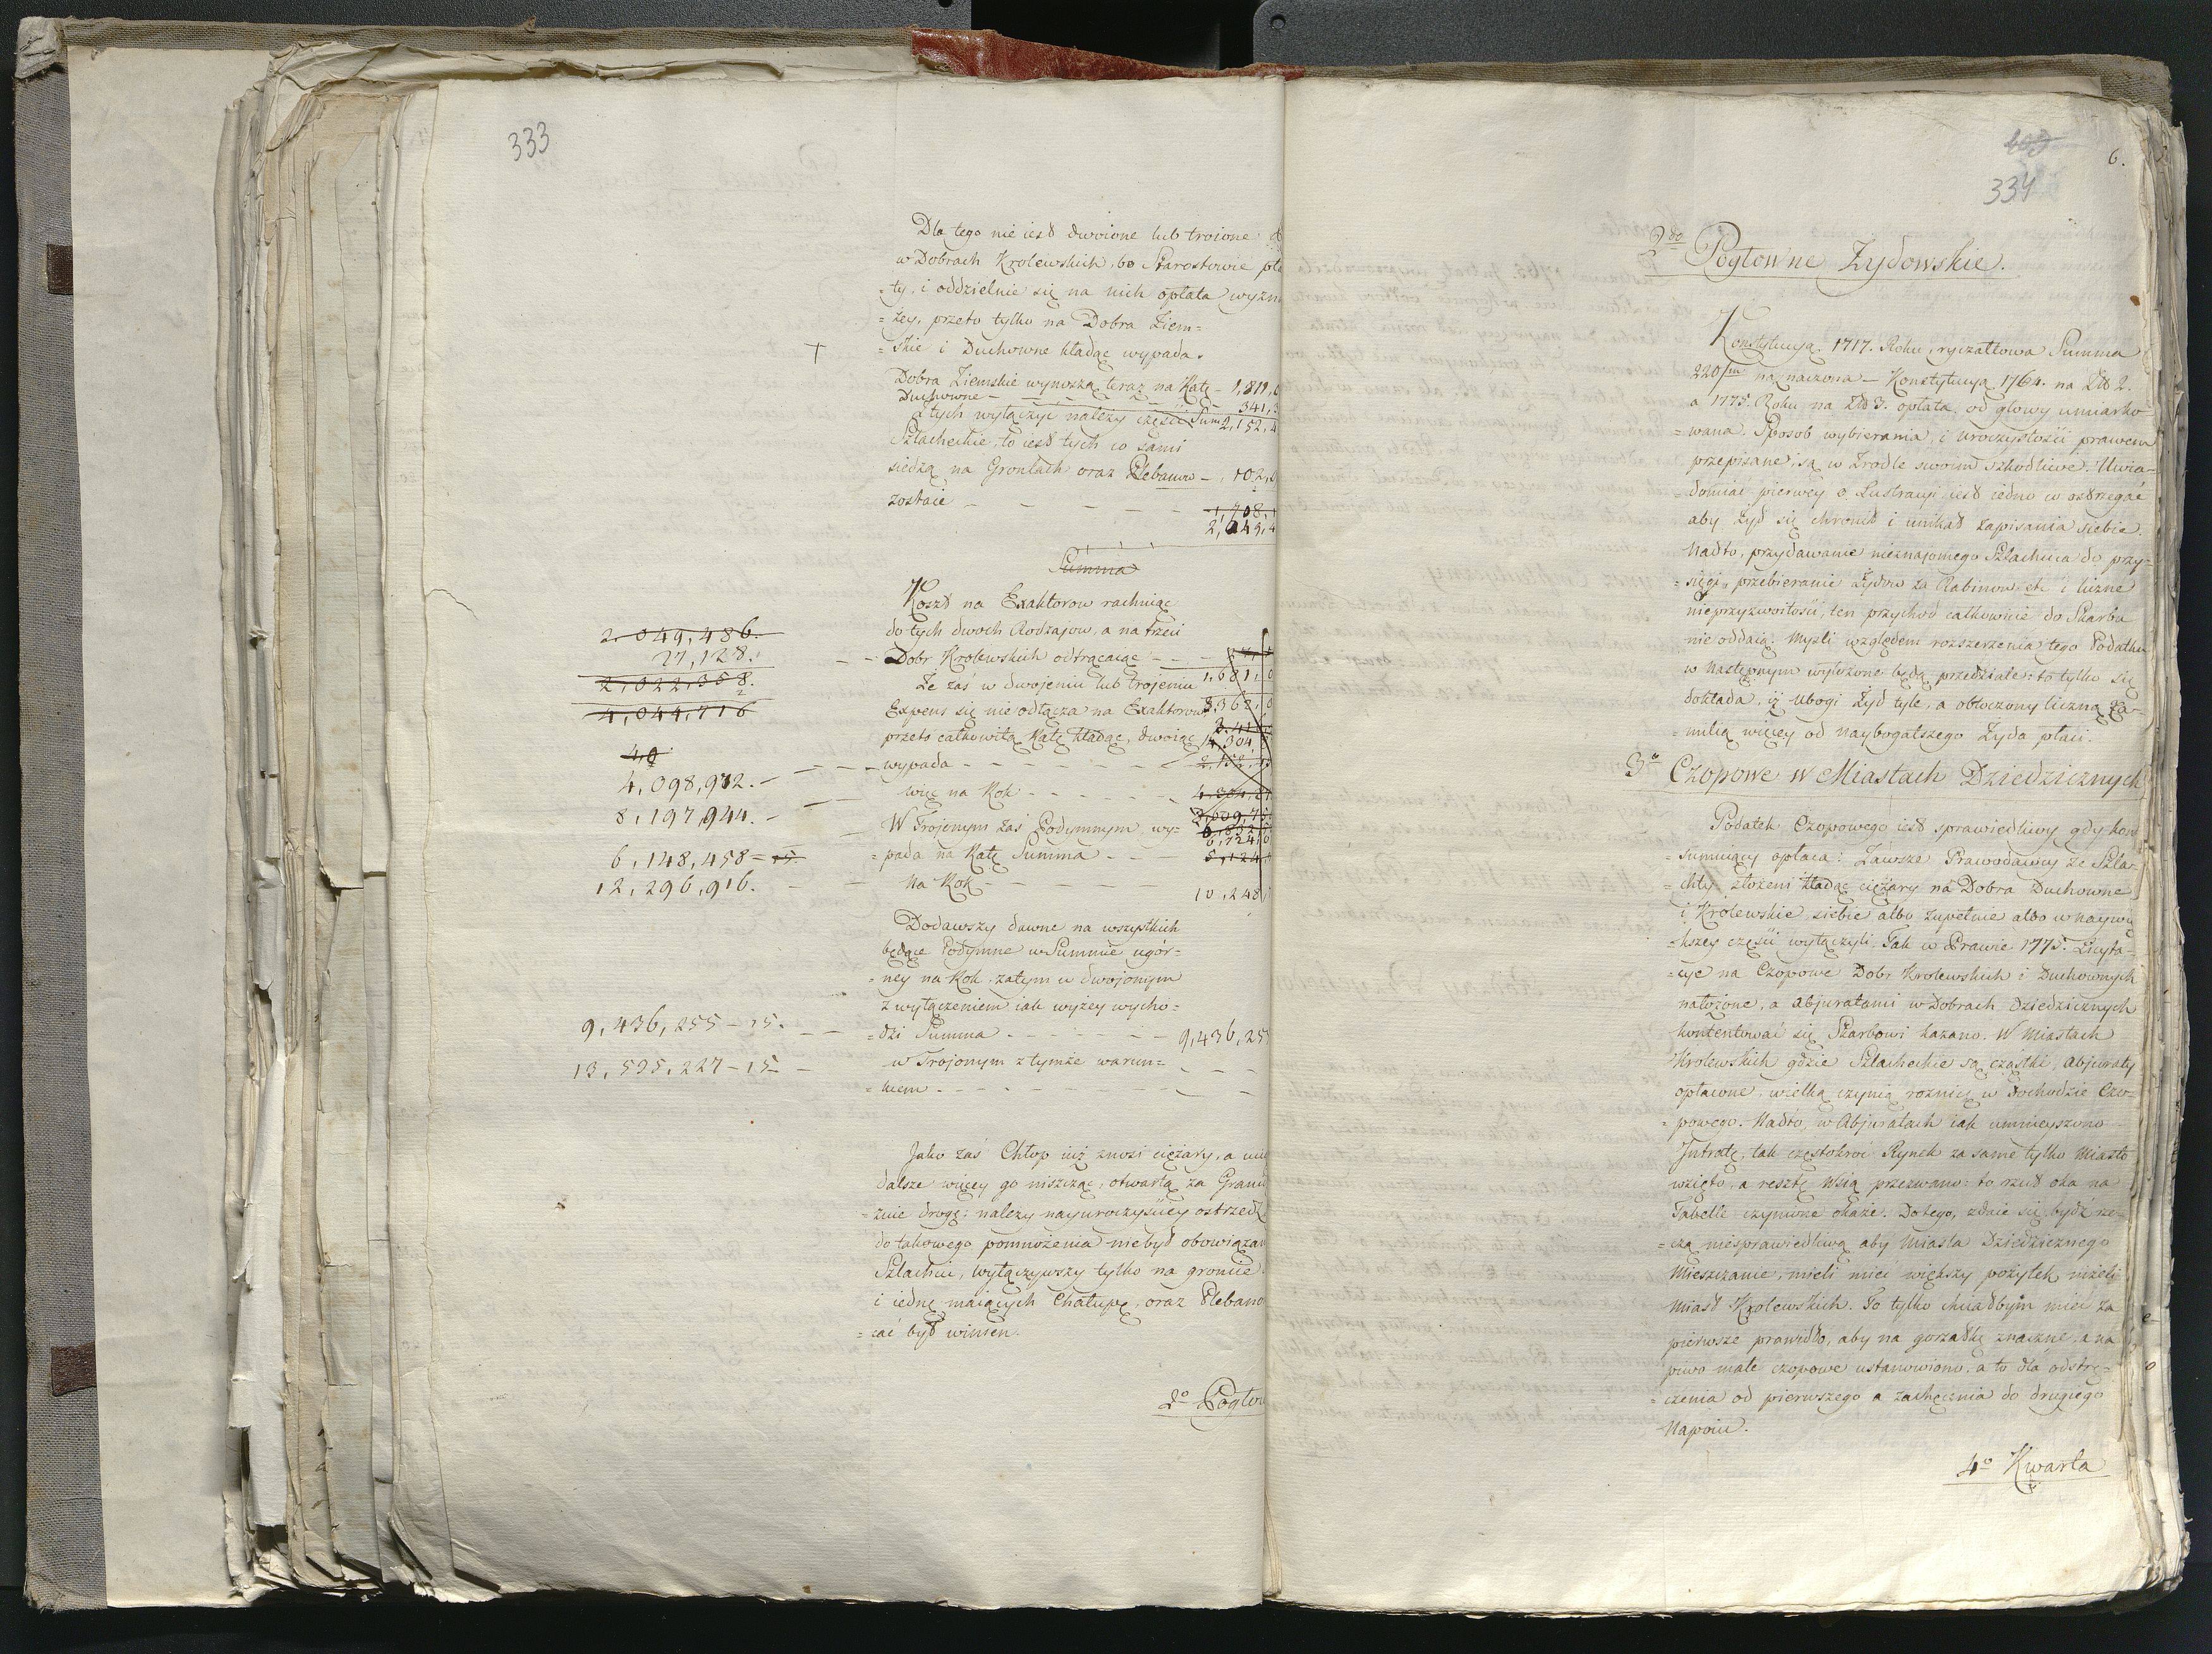 333
Dla tego nie iest dwoione lub troione
w Dobrach Krolewskich, bo Starostowie pła
=ty, i oddzielnie się na nich opłata wyzn
=zey, przeto tylko na Dobra Ziem=
=skie i Duchowne kładąc wypada.
Dobra Ziemskie wynoszą teraz na Ratę – 1,811,
Duchowne – 341,3
z tych wyłączyć należy części Sum 2,152,4
Szlacheckie, to iest tych co sami
siedzą na Gruntach oraz Plebanow – 102,
zostaie – 1,708,
2,049,4
Summa
Koszt na Exaktorow rachuiąc
do tych dwoch Rodzaiow, a na trzeci
2,049,486.
27,128.
Dobr Krolewskich odtrącaiąc – –
2,022,358.
2
Że zaś w dwojeniu lub trojeniu 1,681,
4,044,716
Expens się nie odłącza na Exaktorow 3,362,
przeto całkowitą Ratę kładąc, dwoiąc 4,304,
40
wypada – – – 2,152,
4,098,972. –
więc na Rok – – – 4,304,2
8,197,944. –
W Trojonym zaś Podymnym, wy=
6,148,458 = 15
=pada na Ratę Summa – – 5,124
12,296,916.
na Rok – – – 10,248
Dodawszy dawne na wszystkich
będące Podymne w Summie ugór=
=ney na Rok, zatym w dwojonym
z wyłączeniem iak wyżey wycho=
9,436,255 – 15. – –
=dzi Summa – – – 9,436,25
13,535,227 – 15 –
w Trojonym z tymże warun=
=kiem – – –
Jako zaś Chłop iuż znosi ciężary, a
dalsze więcey go niszcząc, otwartą za Grani
=znie drogę: należy nayuroczyściey ostrzedz
do takowego pomnożenia niebył obowiązan
Szlachcic, wyłączywszy tylko na groncie
i iednę maiących Chałupę, oraz Pleban
=cać był winien.
2º Pogłow
203
6.
334
2do Pogłowne Żydowskie.
Konstytucya 1717. Roku, ryczałtowa Summa
220/m naznaczona – Konstytucya 1764. na Zł 2.
a 1775. Roku na Zł 3. opłata, od głowy umiarko
=wana. Sposob wybierania, i uroczystości prawem
przepisane, są w Zrodle swoim szkodliwe. Uwia=
=domiać pierwey o Lustracyi, iest iedno co ostrzegać
aby Żyd się chronił i unikał zapisania siebie.
Nadto, przydawanie nieznajomego Szlachcica do przy=
=sięgi, przebieranie Żydow za Rabinow etc i liczne
nieprzyzwoitości, ten przychod całkowicie do Skarbu
nie oddaią. Myśli względem rozszerzenia tego Podatku
w następnym wyłożone będą przedziale: to tylko się
dokłada, iż ubogi Żyd tyle, a obłożony liczną Fa=
=milią więcey od naybogatszego Żyda płaci.
3º Czopowe w Miastach Dziedzicznych
Podatek Czopowego iest sprawiedliwy gdy kon
=sumuiący opłaca: Zawsze Prawodawcy ze Szla=
=chty złożeni kładąc ciężary na Dobra Duchowne
i Królewskie, siebie albo zupełnie albo w naywię
=kszey części wyłączyli. Tak w Prawie 1775. Licyta=
=cye na Czopowe Dobr Krolewskich i Duchownych
nałożone, a Abjuratami w Dobrach Dziedzicznych
kontentować się Skarbowi kazano. W Miastach
Krolewskich gdzie Szlacheckie są cząstki, Abjuraty
opłacone, wielką czynią roznicę w Dochodzie Czo=
=powego. Nadto, w Abjuratach iak umnieyszono
Jntratę, tak częstokroć Rynek za same tylko Miasto
wzięto, a resztę Wsią przezwano: to rzut oka na
Tabelle czynione okaże. Do tego, zdaie się bydź rze=
=czą niesprawiedliwą aby Miasta Dziedzicznego
Mieszczanie, mieli mieć większy pożytek niżeli
Miast Krolewskich. To tylko chciałbym mieć za
pierwsze prawidło, aby na gorzałkę znaczne, a na
piwo małe czopowe ustanowiono, a to dla odstrę=
=czenia od pierwszego a zachęcenia do drugiego
Napoiu.
4º Kwarta